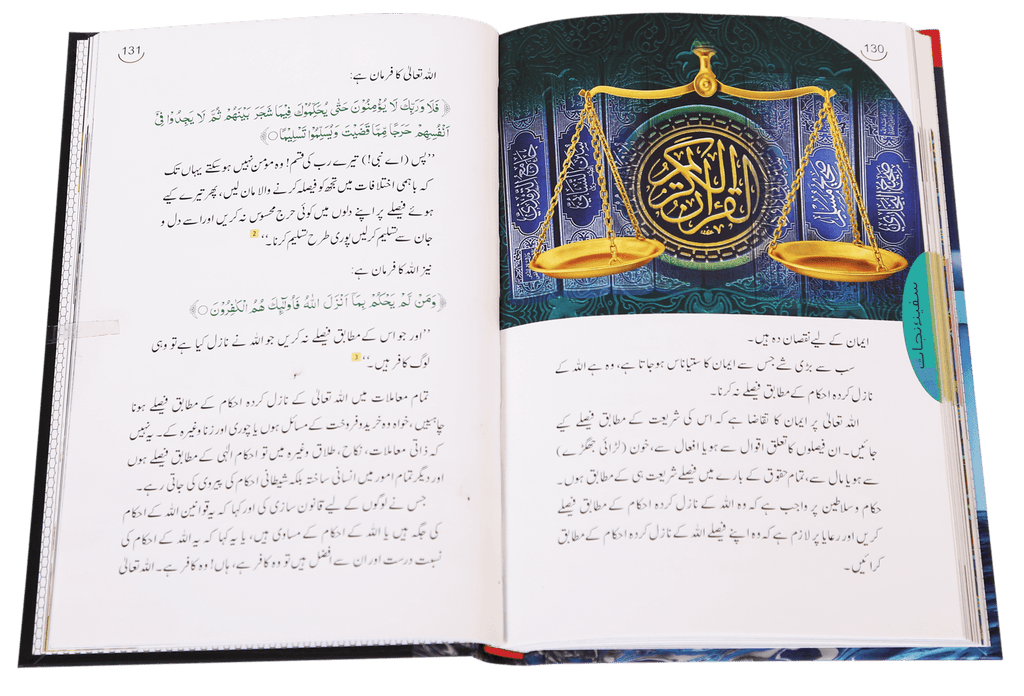 130
القرآن الكريم
صحیح البخاری
صحیح مسلم
سنن النسائی
جامع الترمذی
سفینۂ نجات
ایمان کے لیے نقصان دہ ہیں۔
سب سے بڑی شے جس سے ایمان کا ستیاناس ہوجاتا ہے، وہ ہے اللہ کے
نازل کردہ احکام کے مطابق فیصلے نہ کرنا۔
اللہ تعالیٰ پر ایمان کا تقاضا ہے کہ اس کی شریعت کے مطابق فیصلے کیے
جائیں۔ ان فیصلوں کا تعلق اقوال سے ہو یا افعال سے، خون (لڑائی جھگڑے)
سے ہو یا مال سے، تمام حقوق کے بارے میں فیصلے شریعت ہی کے مطابق ہوں۔
حکام و سلاطین پر واجب ہے کہ وہ اللہ کے نازل کردہ احکام کے مطابق فیصلے
کریں اور رعایا پر لازم ہے کہ وہ اپنے فیصلے اللہ کے نازل کردہ احکام کے مطابق
کرائیں۔
131
اللہ تعالیٰ کا فرمان ہے:
﴿فَلَا وَرَبِّكَ لَا يُؤْمِنُوْنَ حَتّٰى يُحَكِّمُوْكَ فِيْمَا شَجَرَ بَيْنَهُمْ ثُمَّ لَا يَجِدُوْا فِيْٓ
اَنْفُسِهِمْ حَرَجًا مِّمَّا قَضَيْتَ وَيُسَلِّمُوْا تَسْلِيْمًا ○﴾
’’پس (اے نبی!) تیرے رب کی قسم! وہ مومن نہیں ہو سکتے یہاں تک
کہ باہمی اختلافات میں تجھ کو فیصلہ کرنے والا مان لیں، پھر تیرے کیے
ہوئے فیصلے پر اپنے دلوں میں کوئی حرج محسوس نہ کریں اور اسے دل و
جان سے تسلیم کرلیں پوری طرح تسلیم کرنا۔‘‘ 2
نیز اللہ کا فرمان ہے:
﴿وَمَنْ لَّمْ يَحْكُمْ بِمَآ اَنْزَلَ اللّٰهُ فَاُولٰٓئِكَ هُمُ الْكٰفِرُوْنَ ○﴾
’’اور جو اس کے مطابق فیصلے نہ کریں جو اللہ نے نازل کیا ہے تو وہی
لوگ کافر ہیں۔‘‘ 3
تمام معاملات میں اللہ تعالیٰ کے نازل کردہ احکام کے مطابق فیصلے ہونا
چاہییں، خواہ وہ خرید و فروخت کے مسائل ہوں یا چوری اور زنا وغیرہ کے۔ یہ نہیں
کہ ذاتی معاملات، نکاح، طلاق وغیرہ میں تو احکام الٰہی کے مطابق فیصلے ہوں
اور دیگر تمام امور میں انسانی ساختہ بلکہ شیطانی احکام کی پیروی کی جاتی رہے۔
جس نے لوگوں کے لیے قانون سازی کی اور کہا کہ یہ قوانین اللہ کے احکام
کی جگہ ہیں یا اللہ کے احکام کے مساوی ہیں، یا یہ کہا کہ یہ اللہ کے احکام کی
نسبت درست اور ان سے افضل ہیں تو وہ کافر ہے، ہاں! وہ کافر ہے۔ اللہ تعالیٰ